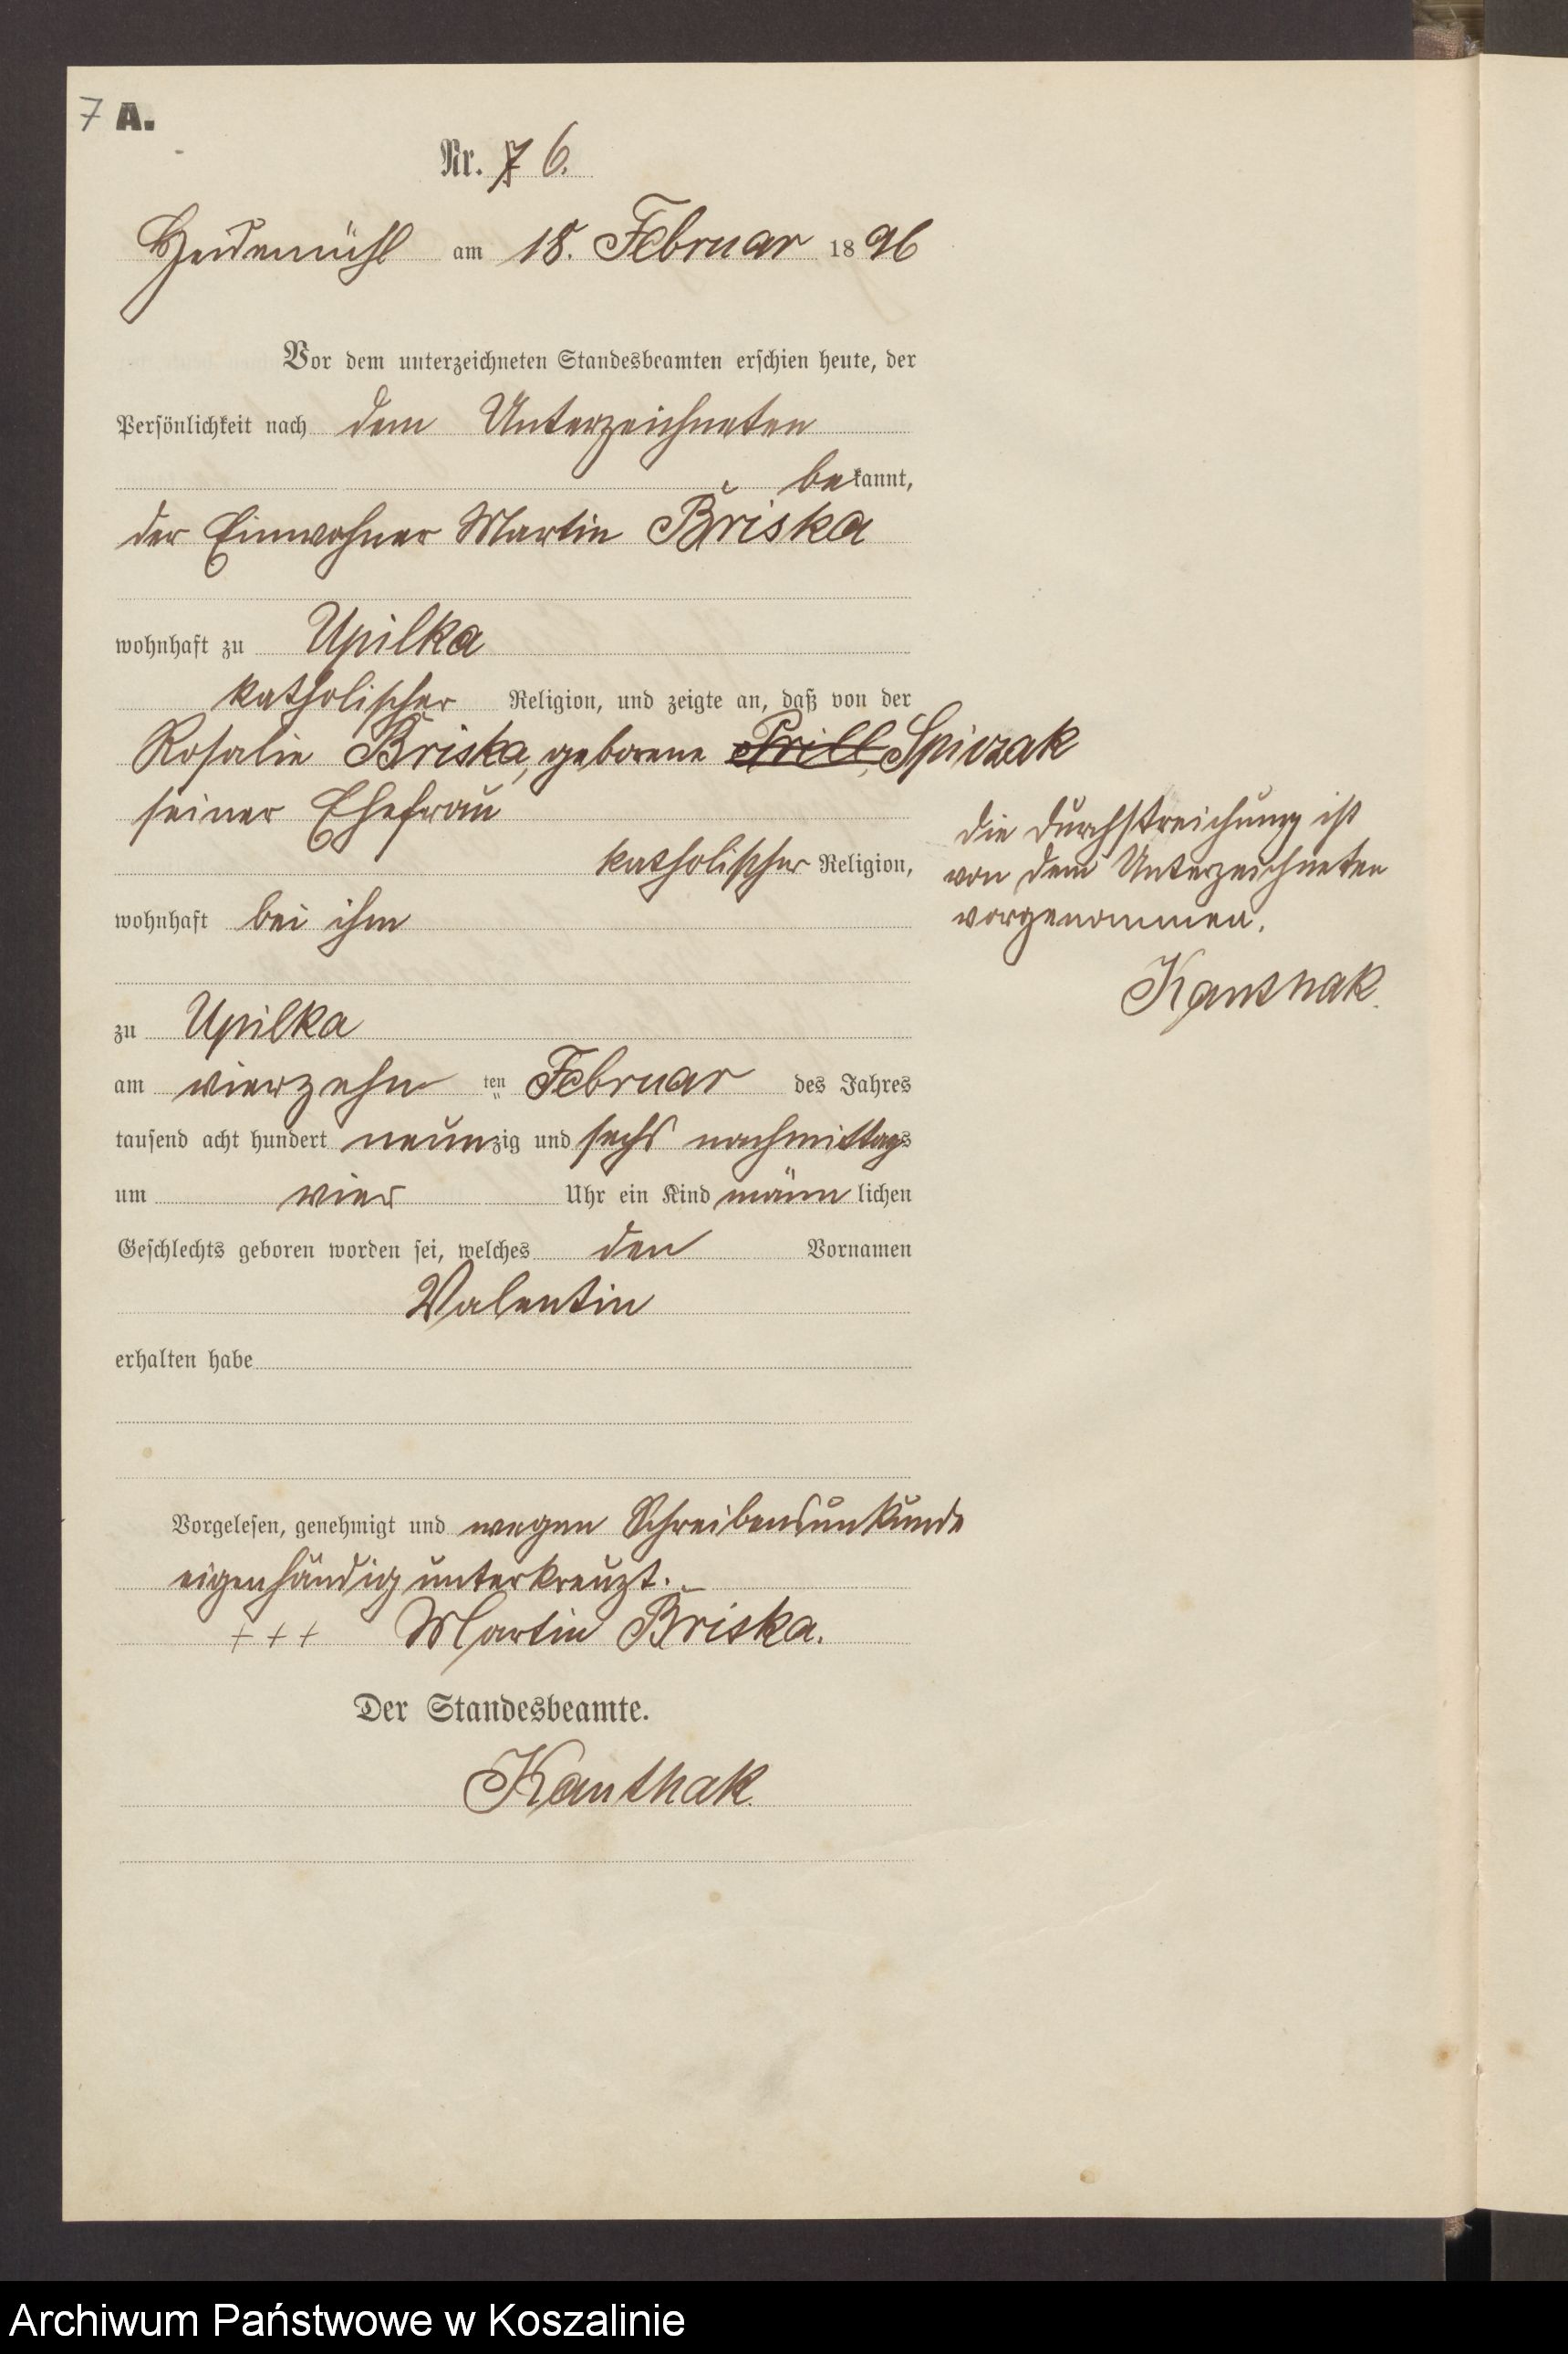 7 A.
Nr. 7 6.
Heidemühl am 18. Februar 1896
Vor dem unterzeichneten Standesbeamten erschien heute, der
Persönlichkeit nach dem Unterzeichneten
bekannt,
der Einwohner Martin Briska
wohnhaft zu Upilka
katholischer Religion, und zeigte an, daß von der
Rosalie Briska, geborene Prill, Spiczak
seiner Ehefrau
katholischer Religion,
wohnhaft bei ihm
zu Upilka
am vierzehn ten Februar des Jahres
tausend acht hundert neunzig und sechs nachmittags
um vier Uhr ein Kind männlichen
Geschlechts geboren worden sei, welches den Vornamen
Valentin
erhalten habe
Vorgelesen, genehmigt und wegen Schreibensunkunde
eigenhändig unterkreuzt.
+++ Martin Briska.
Der Standesbeamte.
Kanthak.
die Durchstreichung ist
von dem Unterzeichneten
vorgenommen.
Kanthak.
Archiwum Państwowe w Koszalinie